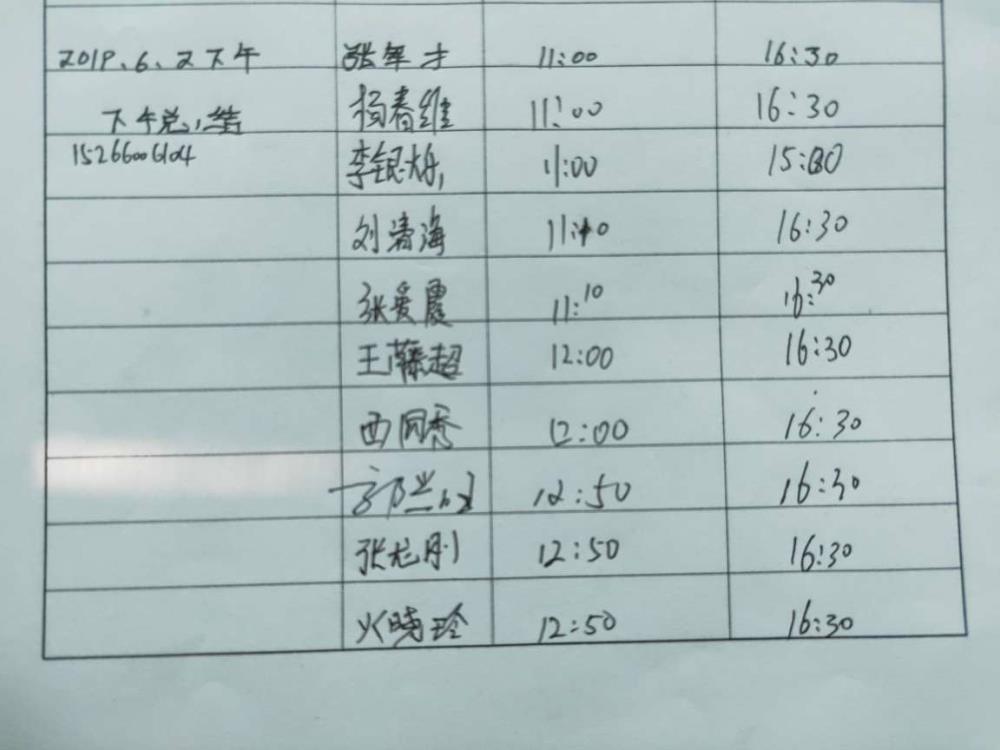 2019.6.2下午 张军才 11:00 16:30
下午兑,结 杨春维 11:00 16:30
15266006104 李银 11:00 15:00
刘清海 11:10 16:30
张爱霞 11:10 16:30
王 超 12:00 16:30
西同秀 12:00 16:30
郭兰 12:50 16:30
张龙刚 12:50 16:30
火晓玲 12:50 16:30